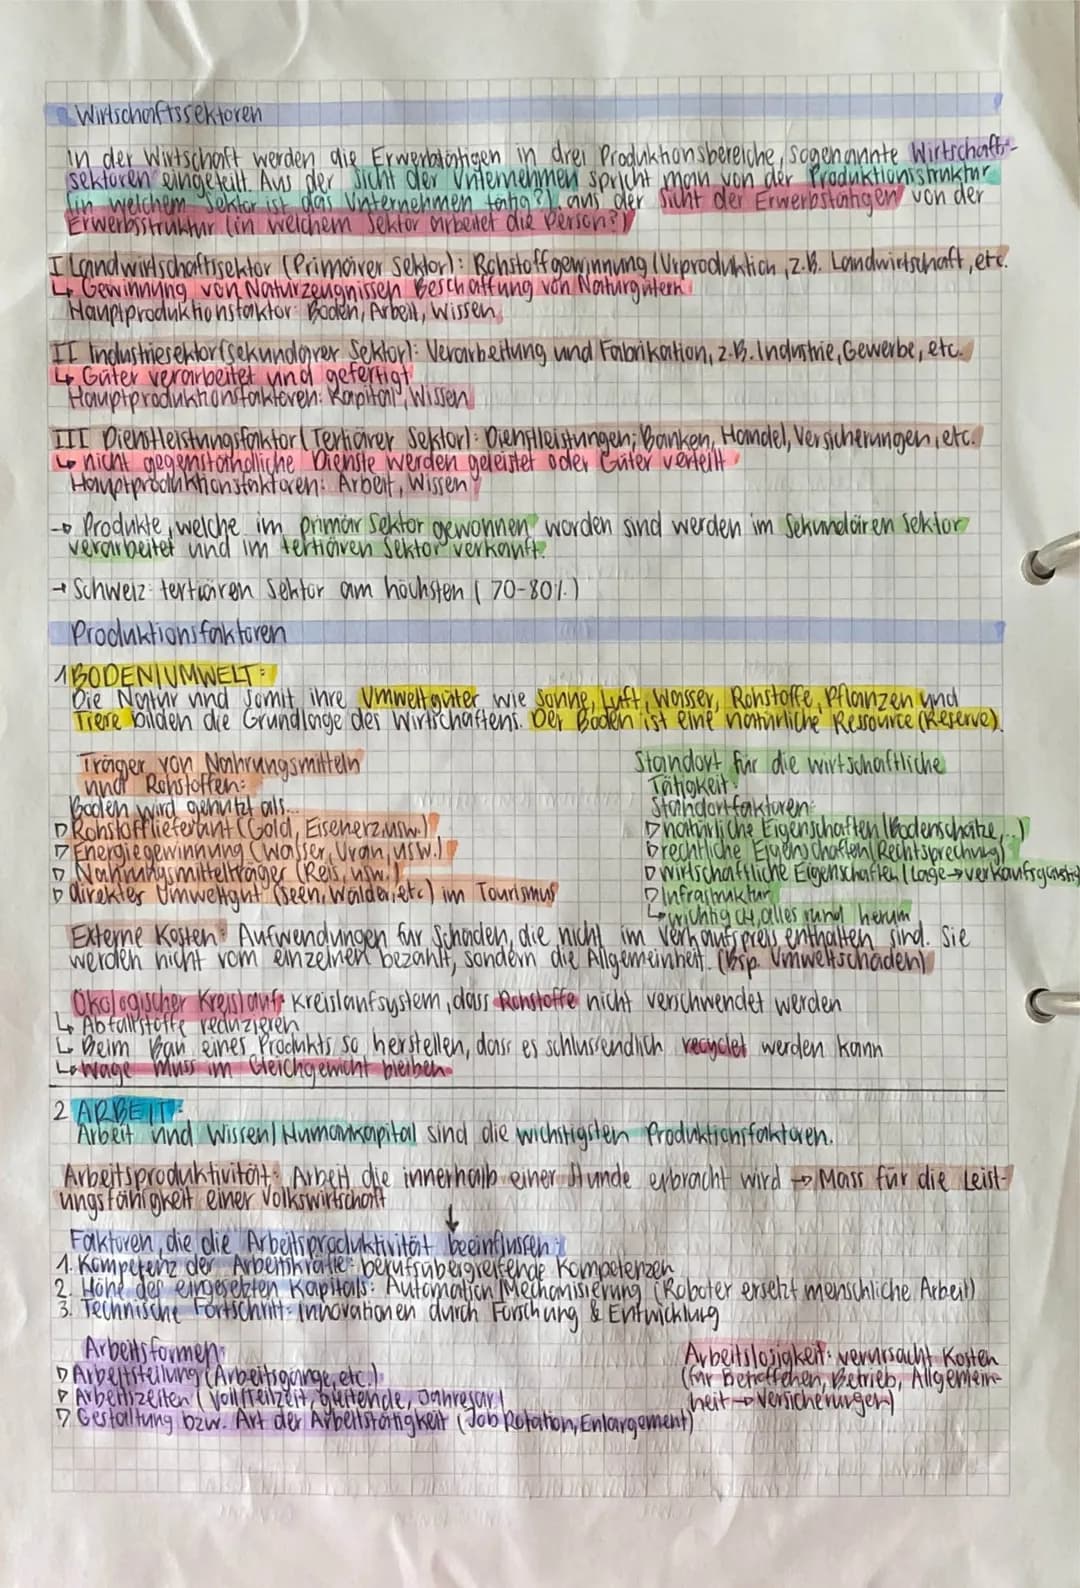 Wirtschaftssektoren
In der Wirtschaft werden die Erwerbstätigen in drei Produktionsbereiche, sogenannte Wirtschafts-
sektoren eingeteilt. Aus der Sicht der Unternehmen spricht man von der Produktionsstruktur
(in welchem Sektor ist das Unternehmen tätig?), aus der Sicht der Erwerbstätigen von der
Erwerbsstruktur (in welchem Sektor arbeitet die Person?)
I Landwirtschaftssektor (Primärer Sektor): Rohstoffgewinnung (Urproduktion, z.B. Landwirtschaft, etc.
↳ Gewinnung von Naturzeugnissen Beschaffung von Naturgütern
Hauptproduktionsfaktor: Boden, Arbeit, Wissen
II Industriesektor (sekundärer Sektor): Verarbeitung und Fabrikation, z.B. Industrie, Gewerbe, etc.
↳ Güter verarbeitet und gefertigt
Hauptproduktionsfaktoren: Kapital, Wissen
III Dienstleistungsfaktor (Tertiärer Sektor): Dienstleistungen; Banken, Handel, Versicherungen, etc.
↳ nicht gegenständliche Dienste werden geleistet oder Güter verteilt
Hauptproduktionsfaktoren: Arbeit, Wissen
→ Produkte, welche im primär Sektor gewonnen worden sind werden im Sekundären Sektor
verarbeitet und im tertiären Sektor verkauft.
→ Schweiz: tertiären Sektor am höchsten (70-80%)
Produktionsfaktoren
1 BODEN/UMWELT:
Die Natur und somit ihre Umweltgüter wie Sonne, Luft, Wasser, Rohstoffe, Pflanzen und
Tiere bilden die Grundlage des Wirtschaftens. Der Boden ist eine natürliche Ressource (Reserve).
Träger von Nahrungsmitteln
und Rohstoffen:
Boden wird genutzt als...
▷ Rohstofflieferant (Gold, Eisenerz, usw.)
▷ Energiegewinnung (Wasser, Uran, usw.)
▷ Nahrungsmittelträger (Reis, usw.)
▷ direkter Umweltgut (Seen, Wälder, etc) im Tourismus
Standort für die wirtschaftliche
Tätigkeit:
Standortfaktoren:
▷ natürliche Eigenschaften (Bodenschätze, ...)
▷ rechtliche Eigenschaften (Rechtsprechung)
▷ wirtschaftliche Eigenschaften (Lage → verkaufsgünstig
▷ Infrastruktur
↳ wichtig CH, alles rund herum
Externe Kosten: Aufwendungen für Schäden, die nicht im Verkaufspreis enthalten sind. Sie
werden nicht vom einzelnen bezahlt, sondern die Allgemeinheit. (Bsp. Umweltschäden)
Ökologischer Kreislauf: Kreislaufsystem, dass Rohstoffe nicht verschwendet werden
↳ Abfallstoffe reduzieren
↳ Beim Bau eines Produkts so herstellen, dass es schlussendlich recyclet werden kann
↳ Wage muss im Gleichgewicht bleiben
2 ARBEIT:
Arbeit und Wissen/Humankapital sind die wichstigsten Produktionsfaktoren.
Arbeitsproduktivität: Arbeit die innerhalb einer Stunde erbracht wird → Mass für die Leist-
ungsfähigkeit einer Volkswirtschaft
↓
Faktoren, die die Arbeitsproduktivität beeinflussen:
1. Kompetenz der Arbeitskräfte: berufsübergreifende Kompetenzen
2. Höhe des eingesetzten Kapitals: Automation/Mechanisierung (Roboter ersetzt menschliche Arbeit)
3. Technische Fortschritt: Innovationen durch Forschung & Entwicklung
Arbeitsformen:
▷ Arbeitsteilung (Arbeitsgänge, etc.)
▷ Arbeitszeiten (Voll/Teilzeit, gleitende, Jahresar.)
▷ Gestaltung bzw. Art der Arbeitstätigkeit (Job Rotation, Enlargement)
Arbeitslosigkeit: verursacht Kosten
(für Betroffenen, Betrieb, Allgemein-
heit → Versicherungen)